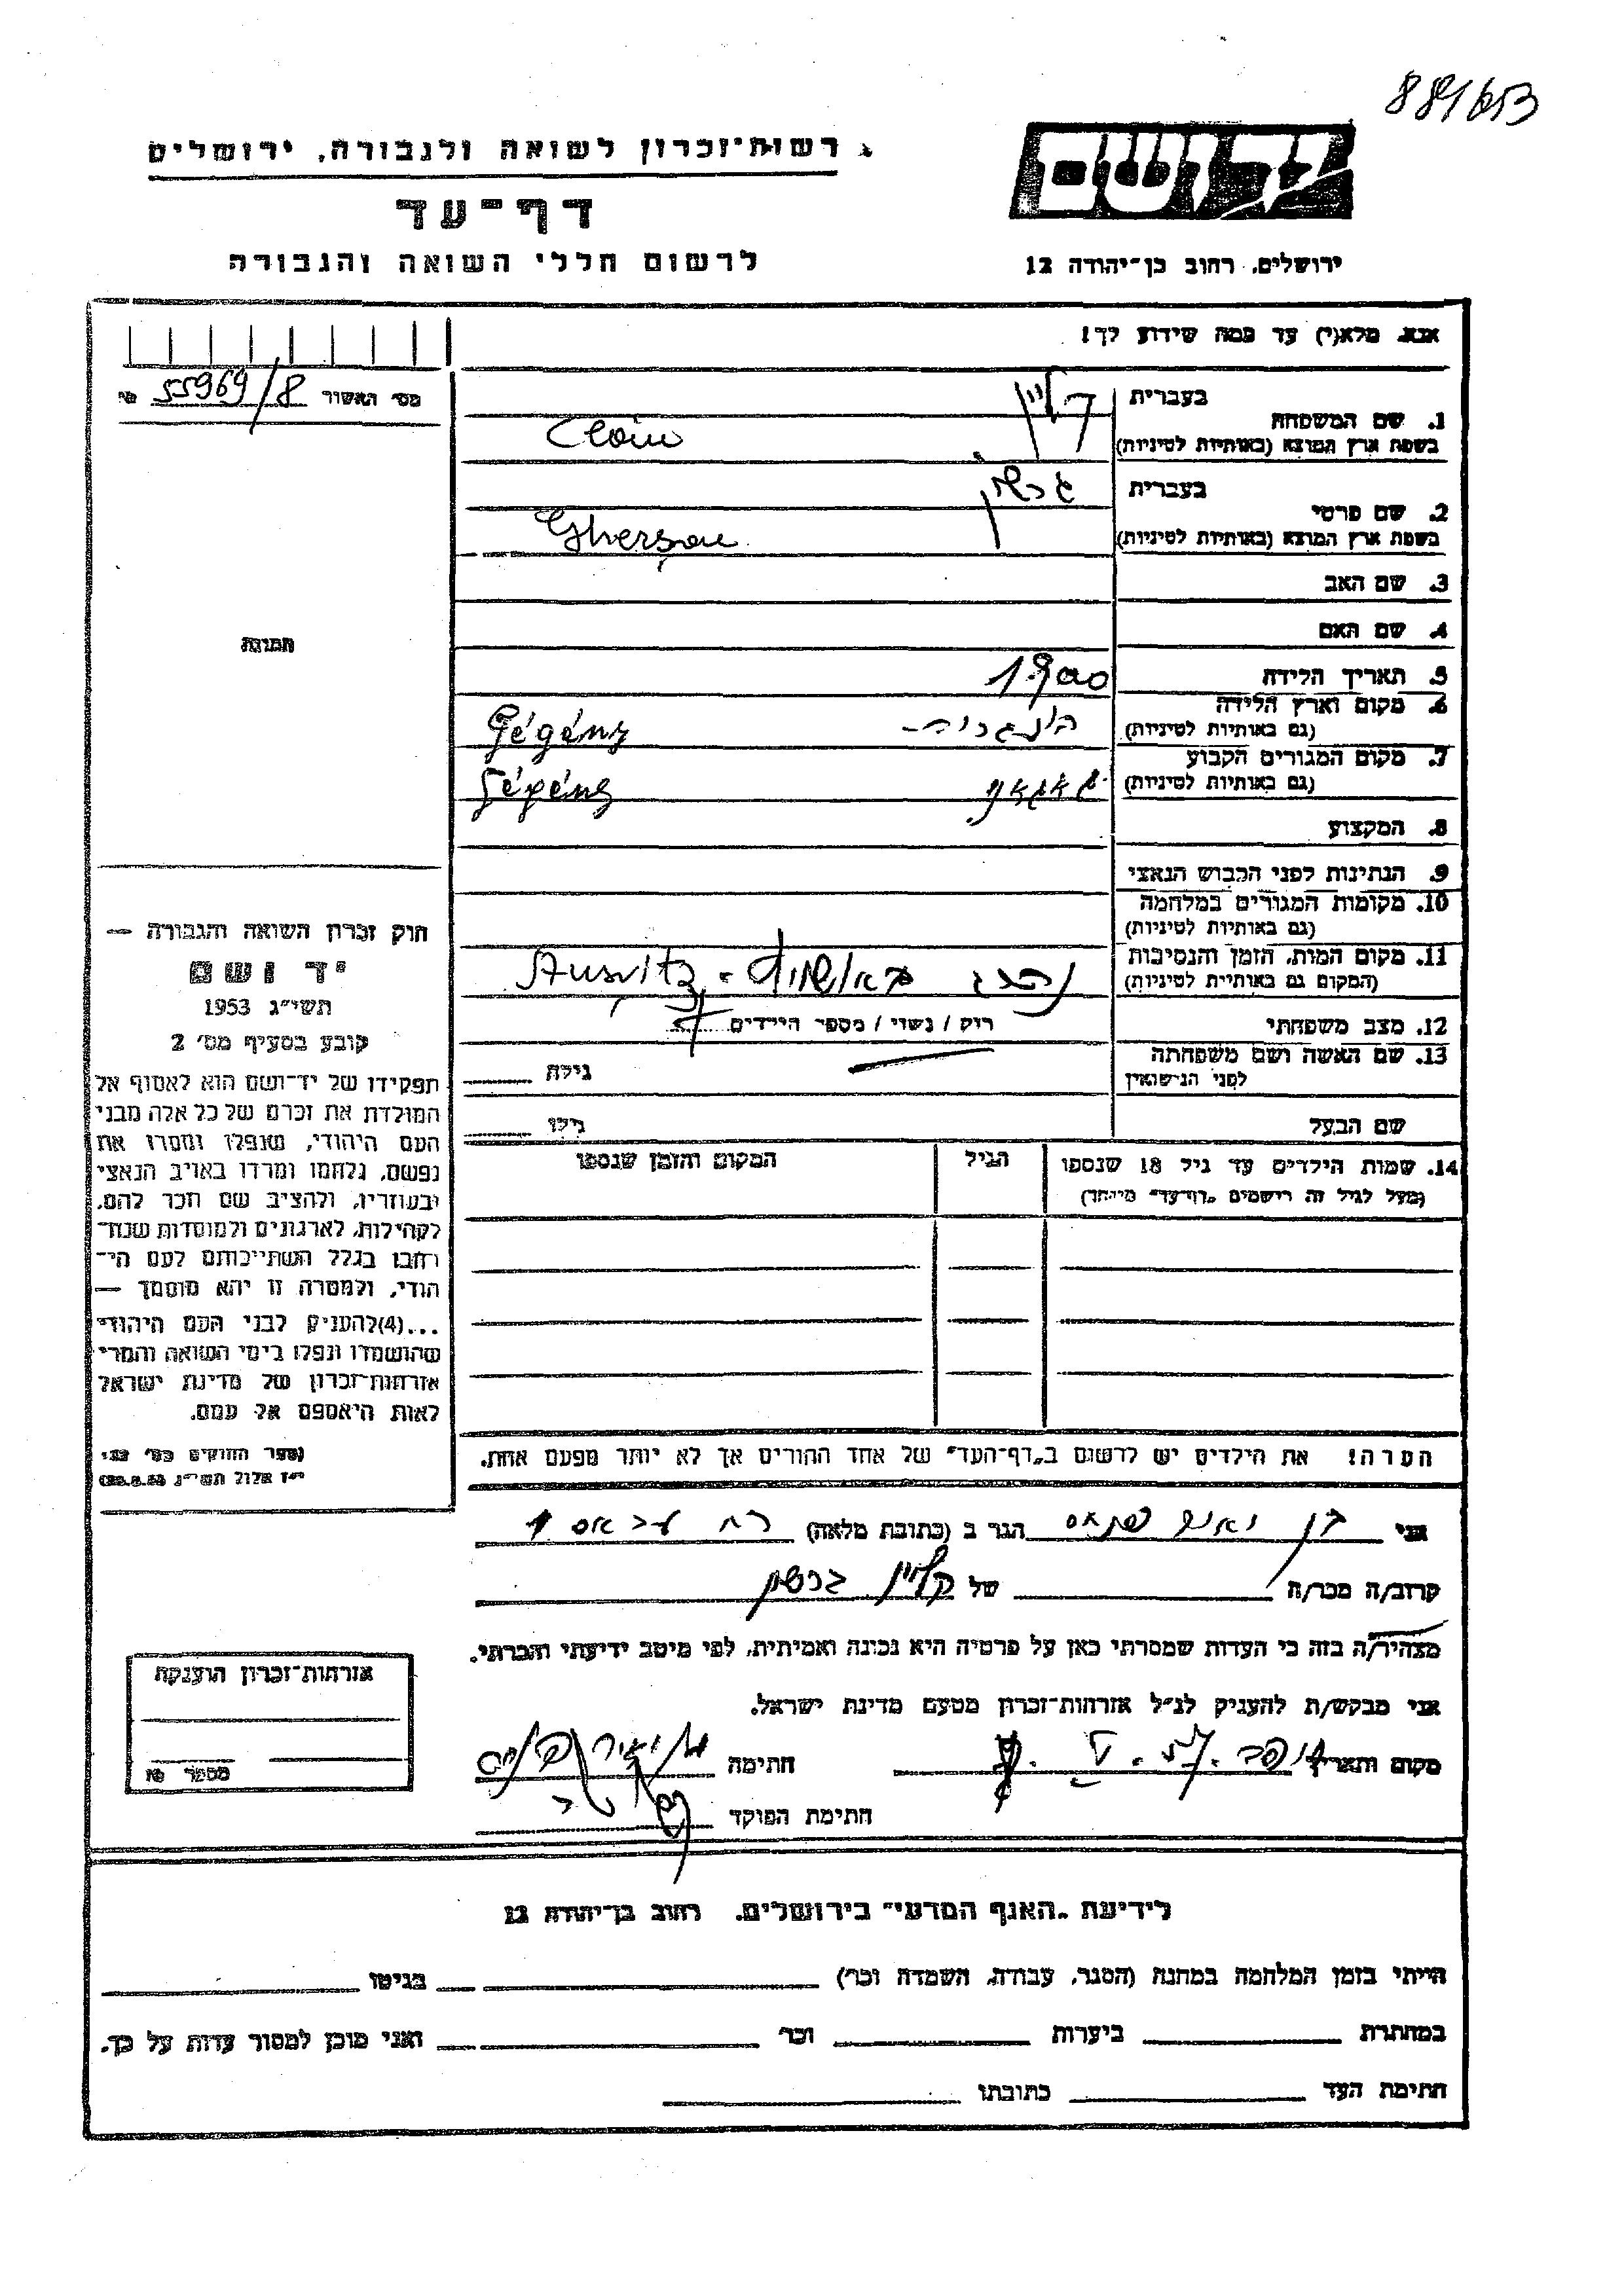 881653
רשות־זכרון לשואה ולגבורה, ירושלים
דף־עד
לרשום חללי השואה והגבורה
יד ושם
ירושלים, רחוב בן־יהודה 12
אנא, מלא(י) עד כמה שידוע לך!
מס׳ האשור 55969/8 №
1. שם המשפחה
בעברית קליין
בשפת ארץ המוצא (באותיות לטיניות) Clain
2. שם פרטי
בעברית גרשון
בשפת ארץ המוצא (באותיות לטיניות) Gherson
3. שם האב
4. שם האם
5. תאריך הלידה 1900
6. מקום וארץ הלידה
(גם באותיות לטיניות) הונגריה- Gégény
7. מקום המגורים הקבוע
(גם באותיות לטיניות) Gégény
8. המקצוע
9. הנתינות לפני הכבוש הנאצי
10. מקומות המגורים במלחמה
(גם באותיות לטיניות)
11. מקום המות, הזמן והנסיבות
(המקום גם באותיות לטיניות) נהרג באושויץ - Ausvitz
12. מצב משפחתי רוק / נשוי / מספר הילדים
13. שם האשה ושם משפחתה
לפני הנישואין גילה
שם הבעל גילו
14. שמות הילדים עד גיל 18 שנספו
(מעל לגיל זה רישמים „דף־עד״ מיוחד)
הגיל
המקום והזמן שנספו
הערה! את הילדים יש לרשום ב„דף־העד״ של אחד ההורים אך לא יותר מפעם אחת.
תמונה
חוק זכרון השואה והגבורה —
יד ושם
תשי״ג 1953
קובע בסעיף מס׳ 2
תפקידו של יד־ושם הוא לאסוף אל
המולדת את זכרם של כל אלה מבני
העם היהודי, שנפלו ומסרו את
נפשם, נלחמו ומרדו באויב הנאצי
ובעוזריו, ולהציב שם וזכר להם,
לקהילות, לארגונים ולמוסדות שנח־
רבו בגלל השתייכותם לעם הי־
הודי, ולמטרה זו יהא מוסמך —
...(4) להעניק לבני העם היהודי
שהושמדו ונפלו בימי השואה והמרי
אזרחות־זכרון של מדינת ישראל
לאות היאספם אל עמם.
(ספר החוקים מס׳ 132,
י״ז אלול תשי״ג 28.8.53)
אני הגר ב (כתובת מלאה)
קרוב/ה מכר/ה של קליין גרשון
מצהיר/ה בזה כי העדות שמסרתי כאן על פרטיה היא נכונה ואמיתית, לפי מיטב ידיעתי והכרתי.
אני מבקש/ת להעניק לנ״ל אזרחות־זכרון מטעם מדינת ישראל.
מקום ותאריך חתימה
חתימת הפוקד
אזרחות־זכרון הוענקה
מספר №
לידיעת „האגף המדעי״ בירושלים, רחוב בן־יהודה 12
הייתי בזמן המלחמה במחנה (הסגר, עבודה, השמדה וכר׳) בגיטו
במחתרת ביערות וכר׳ ואני מוכן למסור עדות על כך.
חתימת העד כתובתו